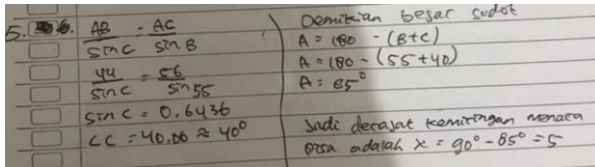 5. 6. AB/sin C = AC/sin B
44/sin C = 56/sin 55
sin C = 0,6436
∠C = 40,06 ≈ 40°
Demikian besar sudut
A = 180 - (B+C)
A = 180 - (55+40)
A = 85°
Jadi derajat kemiringan menara
pisa adalah x = 90° - 85° = 5